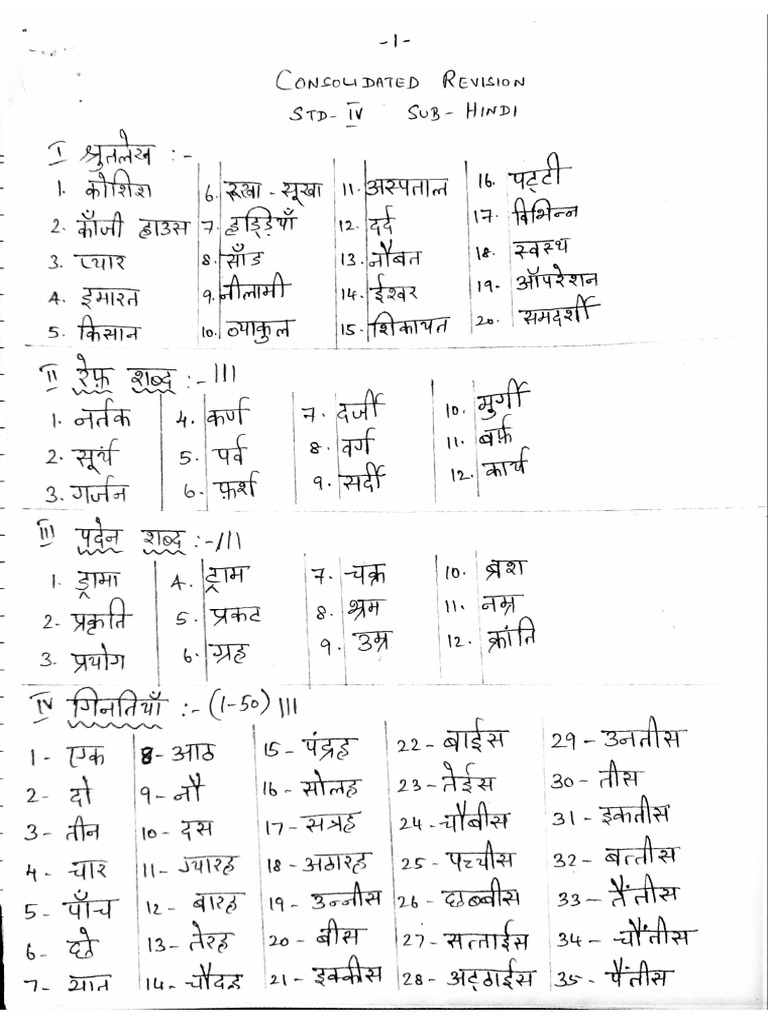 -1-
CONSOLIDATED REVISION
STD- IV SUB- HINDI
I श्रुतलेख :-
1. कोशिश 6. रूखा - सूखा 11. अस्पताल 16. पट्टी
2. काँजी हाउस 7. हड्डियाँ 12. दर्द 17. विभिन्न
3. प्यार 8. साँड 13. नौबत 18. स्वस्थ
4. इमारत 9. नीलामी 14. ईश्वर 19. ऑपरेशन
5. किसान 10. व्याकुल 15. शिकायत 20. समदर्शी
II रेफ़ शब्द :- III
1. नर्तक 4. कर्ण 7. दर्जी 10. मुर्गी
2. सूर्य 5. पर्व 8. वर्ग 11. बर्फ़
3. गर्जन 6. फ़र्श 9. सर्दी 12. कार्य
III पदेन शब्द :- III
1. ड्रामा 4. ट्राम 7. चक्र 10. ब्रश
2. प्रकृति 5. प्रकट 8. भ्रम 11. नम्र
3. प्रयोग 6. ग्रह 9. उम्र 12. क्रांति
IV गिनतियाँ :- (1-50) III
1 - एक 8 - आठ 15 - पंद्रह 22 - बाईस 29 - उनतीस
2 - दो 9 - नौ 16 - सोलह 23 - तेईस 30 - तीस
3 - तीन 10 - दस 17 - सत्रह 24 - चौबीस 31 - इकतीस
4 - चार 11 - ग्यारह 18 - अठारह 25 - पच्चीस 32 - बत्तीस
5 - पाँच 12 - बारह 19 - उन्नीस 26 - छब्बीस 33 - तैंतीस
6 - छे 13 - तेरह 20 - बीस 27 - सत्ताईस 34 - चौंतीस
7 - सात 14 - चौदह 21 - इक्कीस 28 - अट्ठाईस 35 - पैंतीस